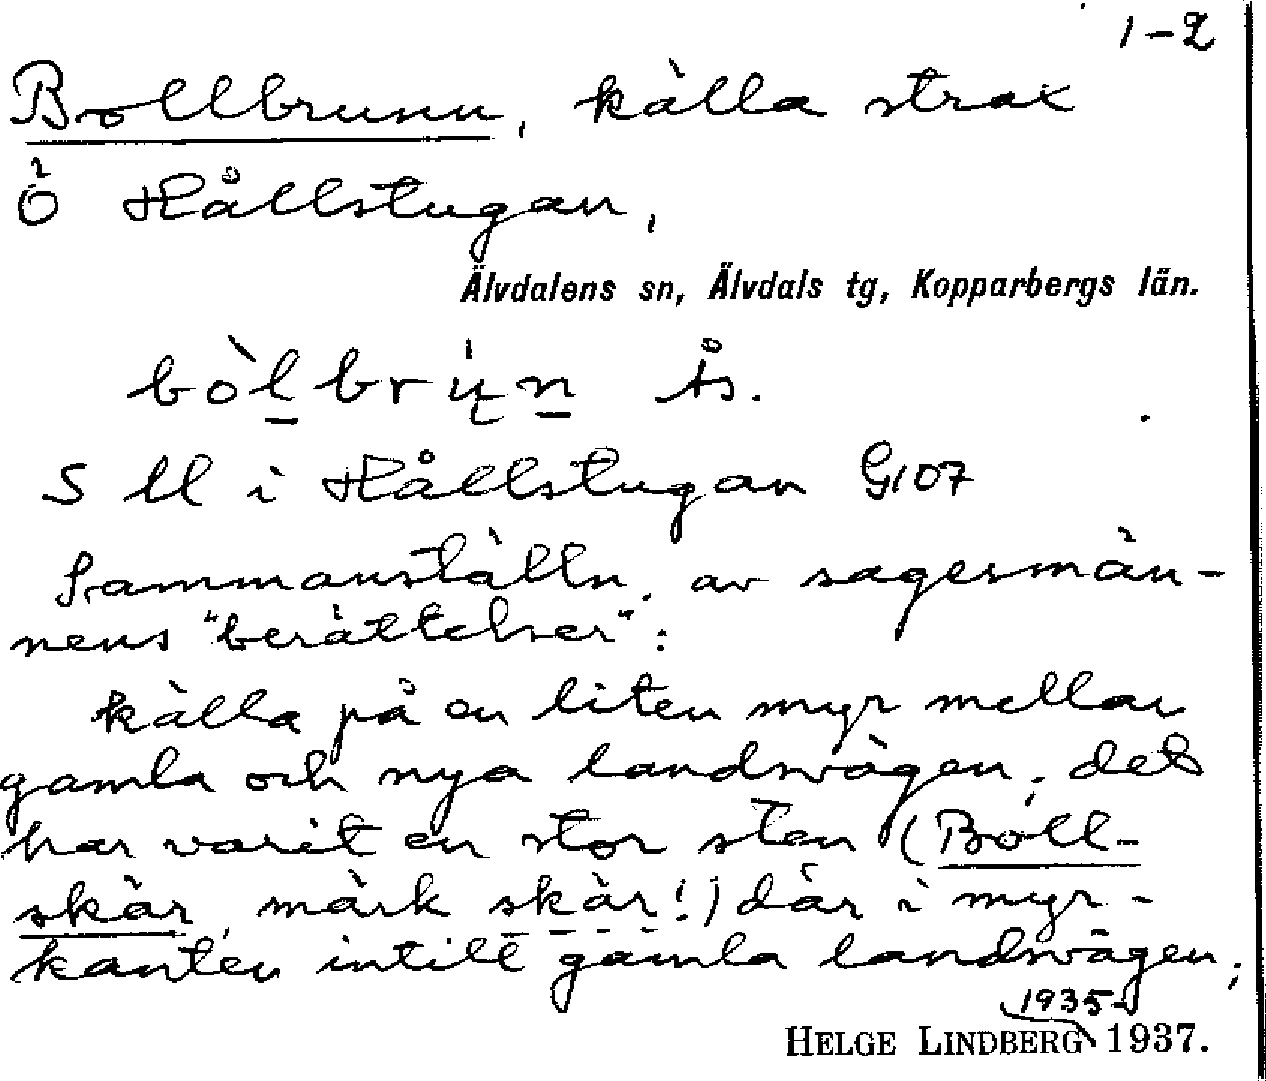 1-2
Bollbrunn, källa strax
Ö Hållstugan,
Älvdalens sn, Älvdals tg, Kopparbergs län.
bòl̲brụ́n̲ Ås.
S ll i Hållstugan G107
Sammanställn. av sagesmän-
nens "berättelser":
källa på en liten myr mellan
gamla och nya landsvägen; det
har varit en stor sten (Boll-
skär, märk skär!) där i myr-
kanten intill gamla landsvägen;
1935-
HELGE LINDBERG 1937.